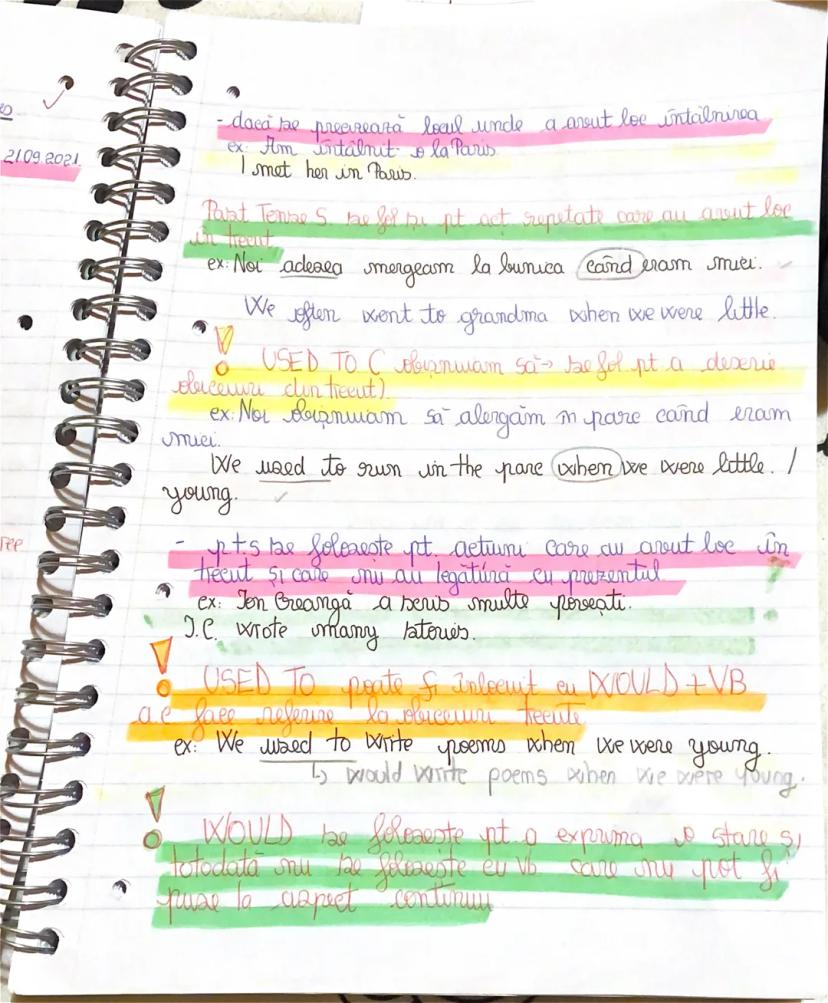 21.09.2021.
- dacă se precizează locul unde a avut loc întâlnirea
ex: Am întâlnit-o la Paris.
I met her in Paris.
Past Tense S. se fol pt acț repetate care au avut loc
în trecut
ex: Noi adesea mergeam la bunica când eram mici.
We often went to grandma when we were little.
! USED TO ( obișnuiam să → se fol pt a descrie
obiceiuri din trecut)
ex: Noi obișnuiam să alergăm în parc când eram
mici.
We used to run in the parc when we were little. /
young.
- p.t.s se folosește pt. acțiuni care au avut loc în
trecut și care nu au legătură cu prezentul
ex: Ion Creangă a scris multe povești.
I.C. wrote many stories.
! USED TO poate fi înlocuit cu WOULD + VB
a.c face referire la obiceiuri trecute
ex: We used to write poems when we were young.
↳ would write poems when we were young.
! WOULD se folosește pt a exprima o stare și
totodată nu se folosește cu vb care nu pot fi
puse la aspect continuu